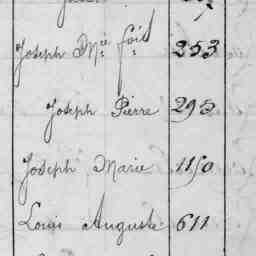 Joseph Mie fois 253
Joseph Pierre 295
Joseph Marie 1150
Louis Auguste 611